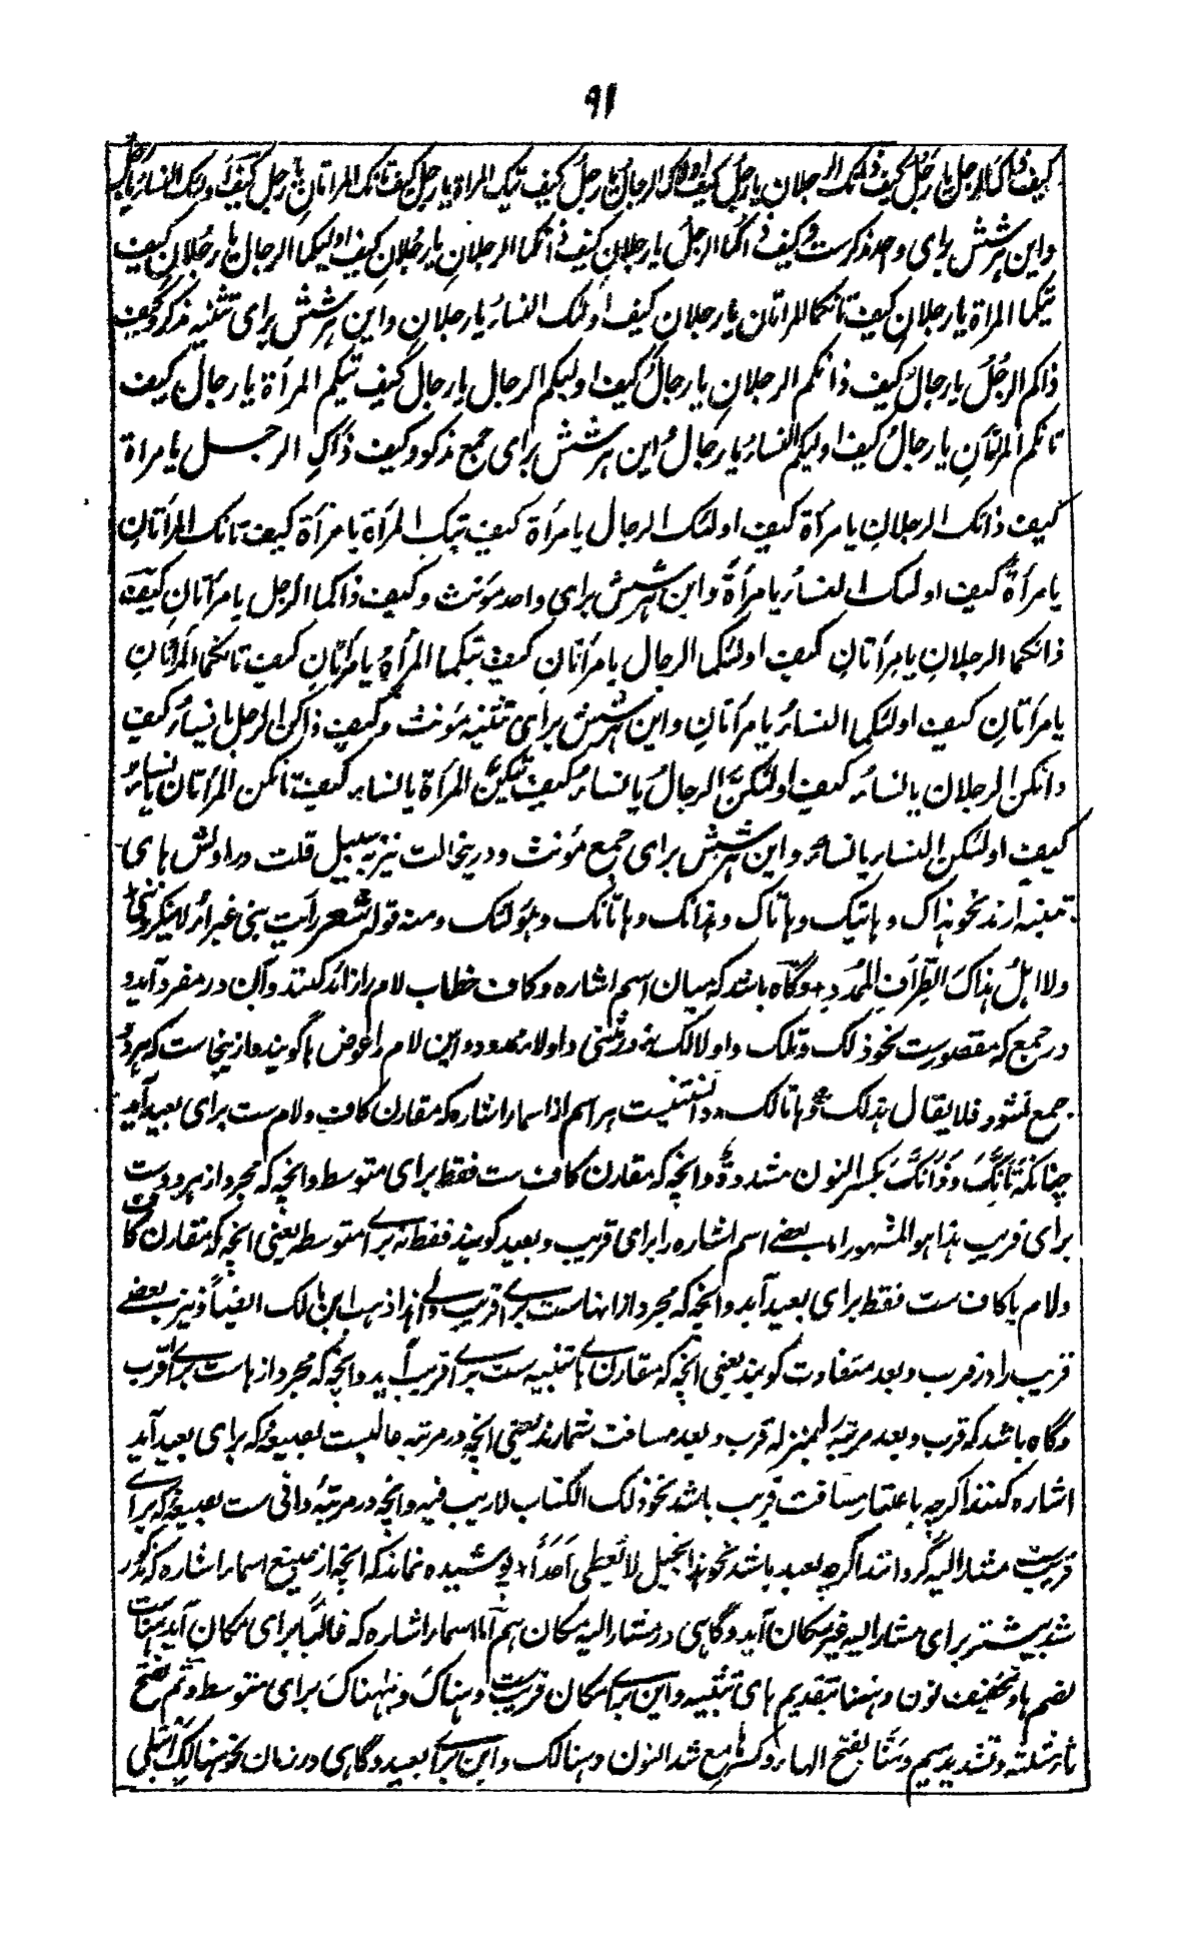 ۹۱
کیف ذاک الرجل یا رجل کیف ذانک الرجلان یا رجل کیف اولئک الرجال یا رجل کیف تیک المراة یا رجل کیف تانک المراتان یا رجل کیف اولئک النساء یا رجل
واین هر شش برای واحد مذکرست وکیف ذاکما الرجل یا رجلان کیف ذانکما الرجلان یا رجلان کیف اولیکما الرجال یا رجلان کیف
تیکما المراة یا رجلان کیف تانکما المراتان یا رجلان کیف اولئک النساء یا رجلان واین هر شش برای تثنیه مذکر وکیف
ذاکم الرجل یا رجال کیف ذانکم الرجلان یا رجال کیف اولیکم الرجال یا رجال کیف تیکم المرأة یا رجال کیف
تانکم المرأتان یا رجال کیف اولیکم النساء یا رجال این هر شش برای جمع مذکر وکیف ذاک الرجل یا مراة
کیف ذانک الرجلان یا مرأة کیف اولئک الرجال یا مرأة کیف تیک المرأة یا مرأة کیف تانک المرأتان
یا مرأة کیف اولئک النساء یا مرأة واین هر شش برای واحد مؤنث وکیف ذاکما الرجل یا مرأتان کیف
ذانکما الرجلان یا مرأتان کیف اولئکما الرجال یا مرأتان کیف تیکما المرأة یا مرأتان کیف تانکما المرأتان
یا مرأتان کیف اولئکما النساء یا مرأتان واین هر شش برای تثنیه مؤنث وکیف ذاکن الرجل یا نساء کیف
ذانکن الرجلان یا نساء کیف اولئکن الرجال یا نساء کیف تیکن المرأة یا نساء کیف تانکن المرأتان یا نساء
کیف اولئکن النساء یا نساء واین هر شش برای جمع مؤنث ودرینحالت نیز بسبیل قلت در اولش های
تنبیه آرند نحو هذاک وهاتیک وهاتاک وهذانک وهاتانک وهؤلئک ومنه قوله شعر رأیت بنی غبراء لا ینکروننی
ولا اهل هذاک الطراف الممدد وگاه باشد که میان اسم اشاره وکاف خطاب لام را زائد کنند وآن در مفرد آید و
در جمع که مقصورست نحو ذلک وتلک واولالک نه در مثنی واولاء ممدود واین لام را عوض ها گویند وازینجاست که هر دو
جمع نشود فلا یقال هذلک وهاتالک دانستنیست هر اسم از اسماء اشاره که مقارن کاف ولام ست برای بعید آید
چنانکه تانک وذانک بکسر النون مشددة وانچه که مقارن کاف ست فقط برای متوسط وانچه که مجرد از هر دوست
برای قریب هذا هو المشهور اما بعضے اسم اشاره را برای قریب وبعید گویند فقط نه براے متوسط یعنی انچه که مقارن کاف
ولام یا کاف ست فقط برای بعید آید وانچه که مجرد از انهاست براے قریب والے هذا ذهب ابن مالک ایضاً ونیز بعضے
قریب را در قرب وبعد متفاوت گویند یعنی انچه که مقارن هاے تنبیه ست براے قریب آید وانچه که مجرد از هاست براے اقرب
وگاه باشد که قرب وبعد مرتبه را بمنزله قرب وبعد مسافت شمارند یعنی انچه در مرتبه عالیست بصیغه که برای بعید آید
اشاره کنند اگرچه باعتبار مسافت قریب باشد نحو ذلک الکتاب لا ریب فیه وانچه در مرتبهٔ دانی ست بصیغه که براے
قریبست مشار الیه گردانند اگرچه بعید باشد نحو هذا البخیل لا یعطی احدا پوشیده نماند که انچه از صیغ اسماء اشاره که مذکور
شد بیشتر برای مشار الیه غیر مکان آید وگاهی در مشار الیه مکان هم اما اسماء اشاره که غالبًا برای مکان آید هناست
بضم ها وتخفیف نون وههنا بتقدیم های تنبیه واین براے مکان قریبست وهناک وههناک برای متوسط وثم بفتح
ثاء مثلثه وتشدید میم وهنا بفتح الهاء وکسرها مع شد النون وهنالک واین براے بعید وگاهی در زمان نحو هنالک ابتلی